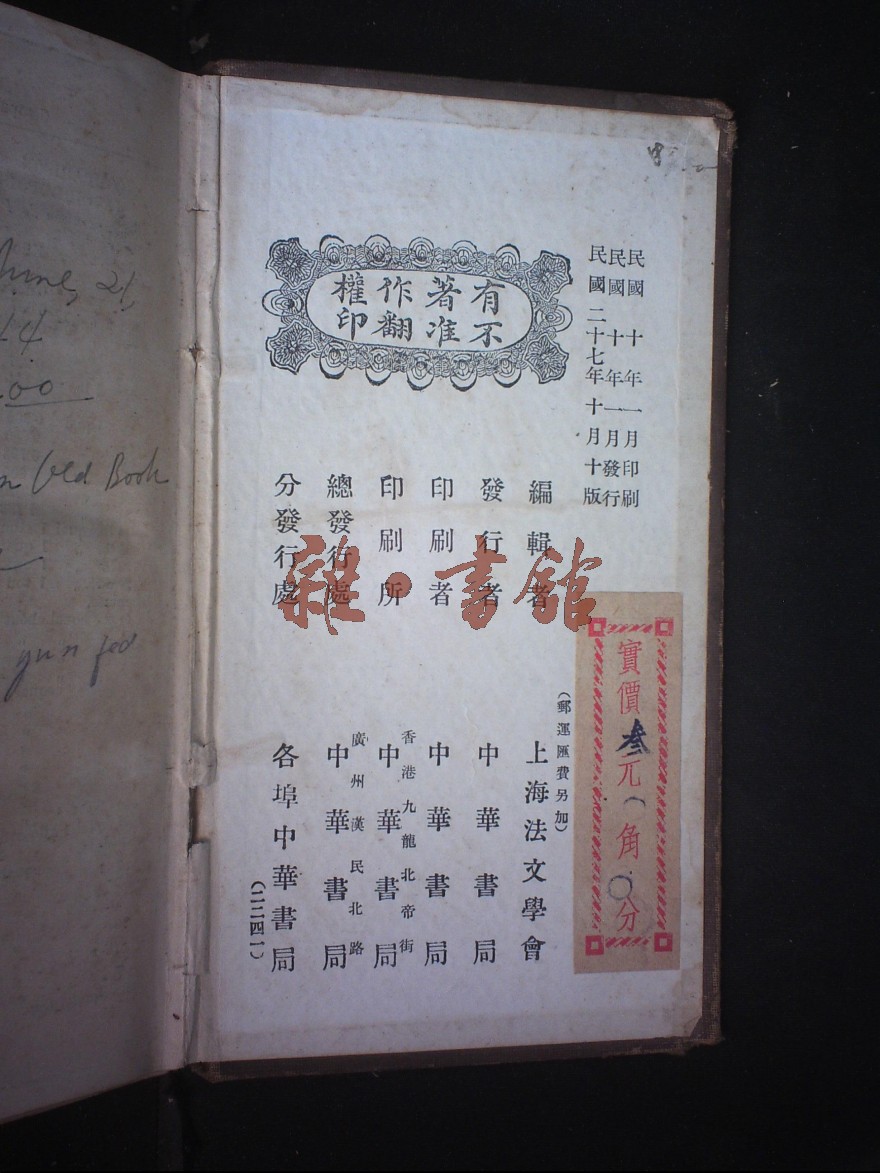 民國十年一月印刷
民國十年一月發行
民國二十七年十月十版
有著作權
不准翻印
編輯者 上海法文學會
發行者 中華書局
印刷者 中華書局
印刷所 香港九龍北帝街 中華書局
總發行處 廣州漢民北路 中華書局
分發行處 各埠中華書局
(二二四一)
(郵運匯費另加)
實價叁元一角〇分
雜·書館
June, 21,
.00
Old Book